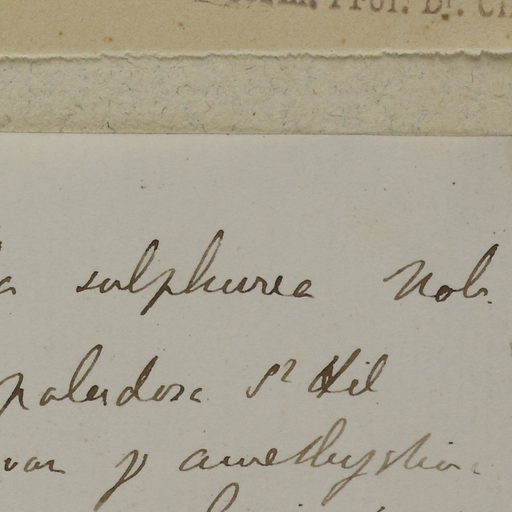 Prof. Dr.
sulphurea Nob.
paludosa St Hil
var γ amethystina